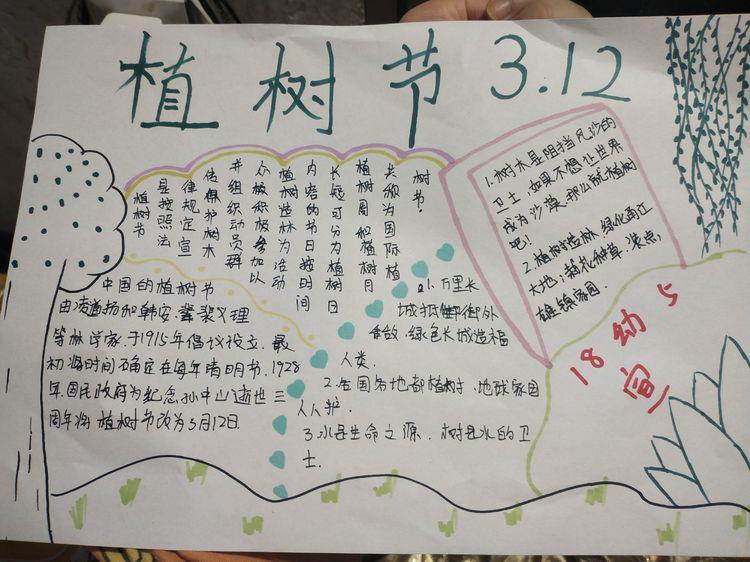 植树节 3.12
植树节
是按照法
律规定宣
传保护树木
并组织动员群
众积极参加以
植树造林为活动
内容的节日按时间
长短可分为植树日
植树周和植树月
共称为国际植
树节.
中国的植树节
由凌道扬和韩安、裴义理
等林学家于1915年倡议设立.最
初将时间确定在每年清明节.1928
年.国民政府为纪念孙中山逝世三
周年将植树节改为3月12日.
1.万里长
城抵御外
敌.绿色长城造福
人类.
2.全国各地都植树.地球家园
人人护.
3.水是生命之源.树是水的卫
士.
1.树木是阻挡风沙的
卫士.如果不想让世界
成为沙漠.那么就植树
吧!
2.植树造林绿化通江
大地;栽花种草.装点
雄镇家园.
18幼5
宣